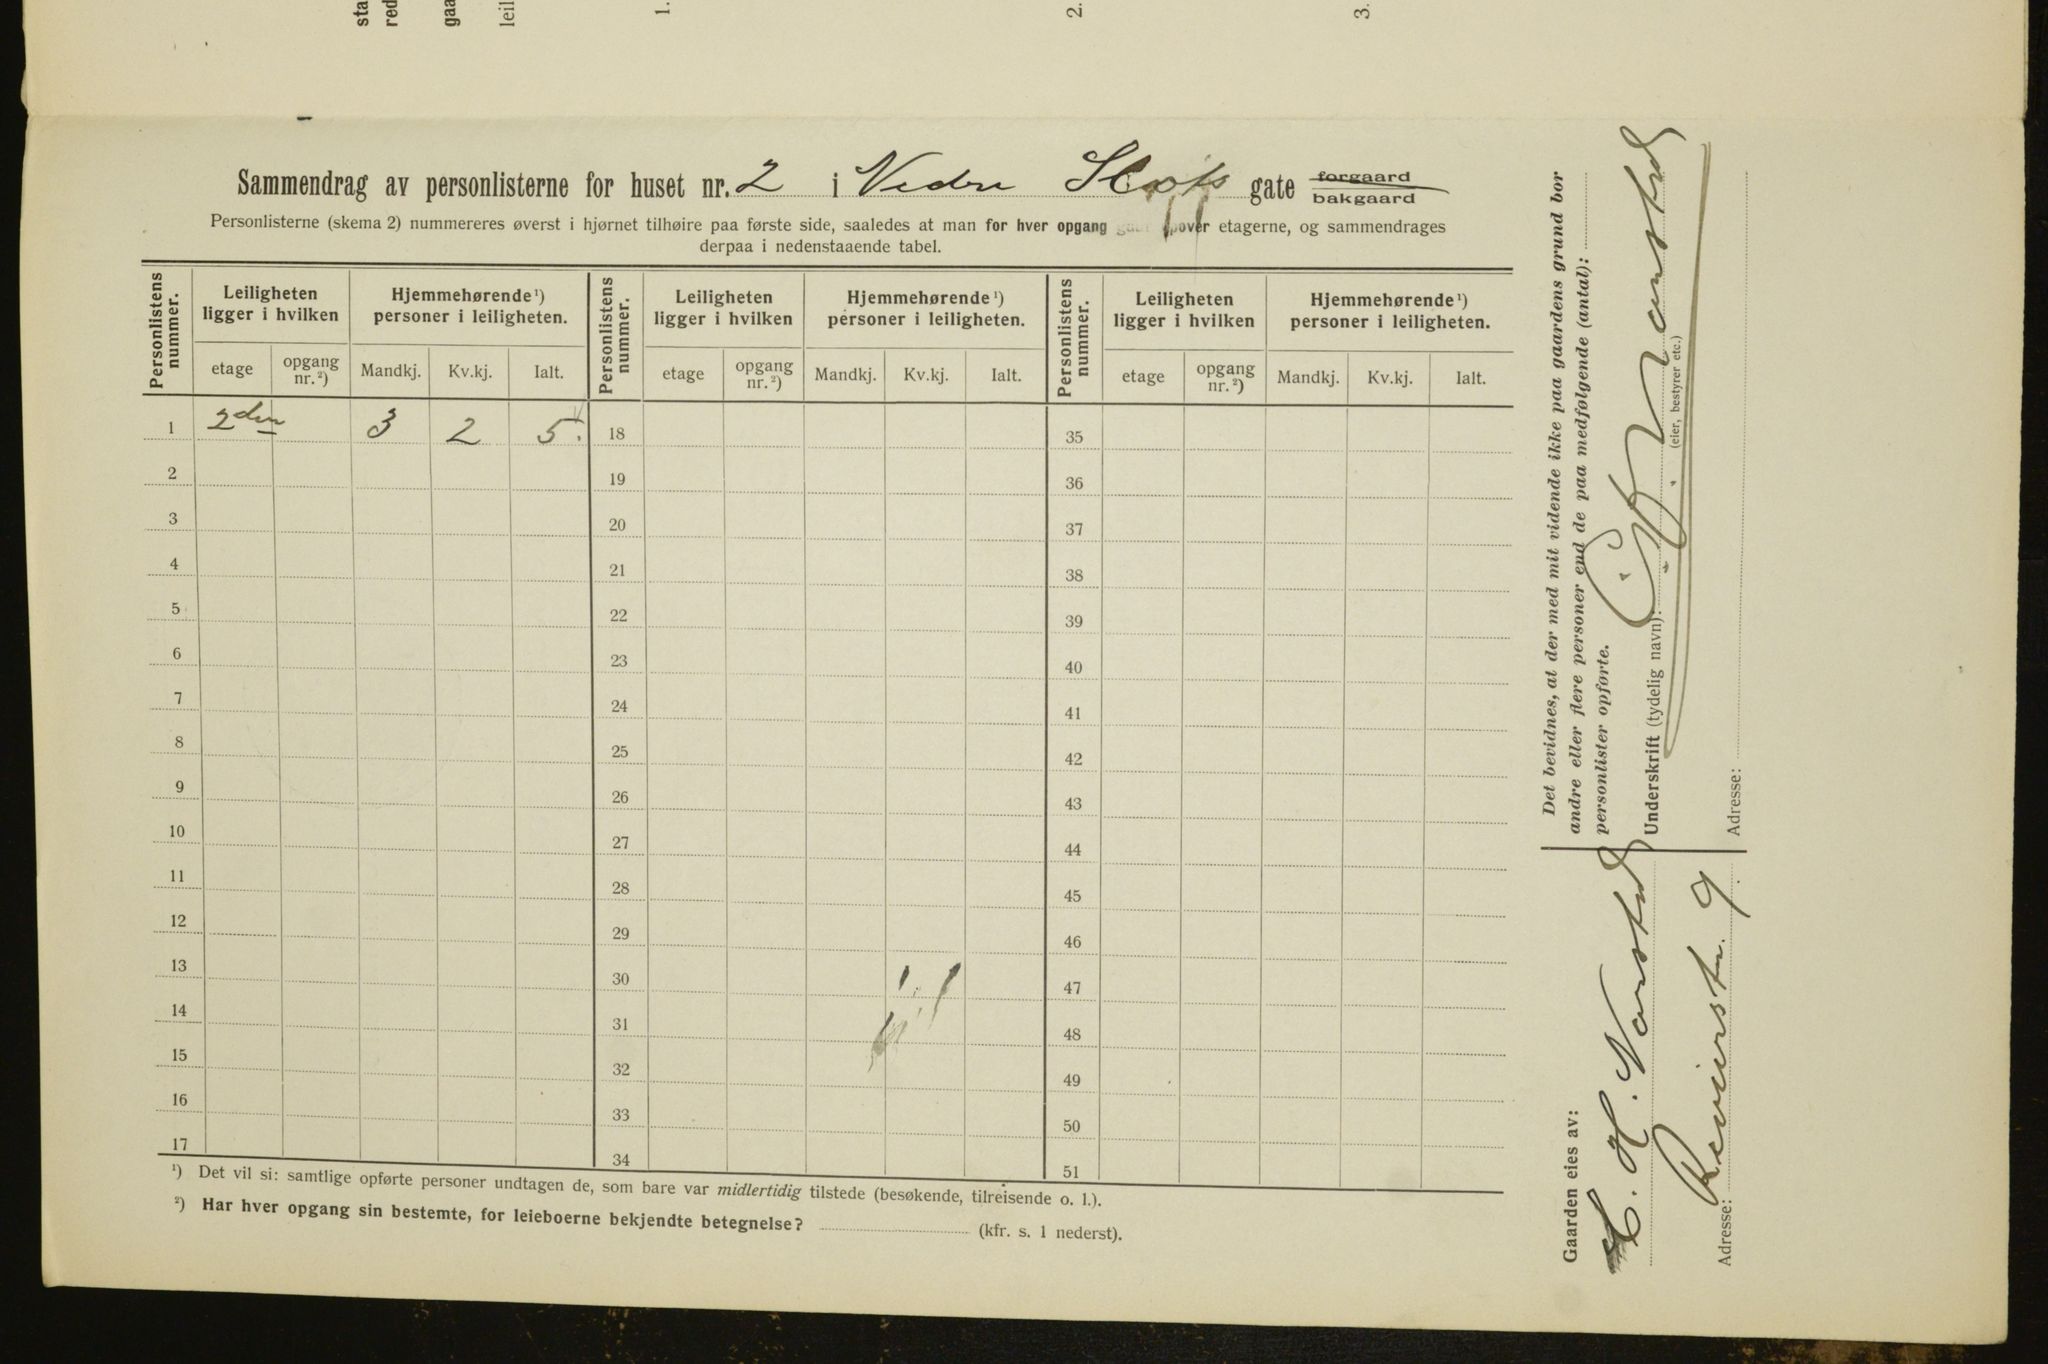 sta
red
gaa
leil
1.
2.
3.
Sammendrag av personlisterne for huset nr. 2 i Nedre Slots gate ~~forgaard~~ bakgaard
Personlisterne (skema 2) nummereres øverst i hjørnet tilhøire paa første side, saaledes at man for hver opgang over etagerne, og sammendrages
derpaa i nedenstaaende tabel.
Personlistens nummer. Leiligheten ligger i hvilken Hjemmehørende ¹) personer i leiligheten. Personlistens nummer. Leiligheten ligger i hvilken Hjemmehørende ¹) personer i leiligheten. Personlistens nummer. Leiligheten ligger i hvilken Hjemmehørende ¹) personer i leiligheten.
etage opgang nr. ²) Mandkj. Kv.kj. Ialt. etage opgang nr. ²) Mandkj. Kv.kj. Ialt. etage opgang nr. ²) Mandkj. Kv.kj. Ialt.
1 2den 3 2 5. 18 35
2 19 36
3 20 37
4 21 38
5 22 39
6 23 40
7 24 41
8 25 42
9 26 43
10 27 44
11 28 45
12 29 46
13 30 47
14 31 48
15 32 49
16 33 50
17 34 51
¹) Det vil si: samtlige opførte personer undtagen de, som bare var midlertidig tilstede (besøkende, tilreisende o. l.).
²) Har hver opgang sin bestemte, for leieboerne bekjendte betegnelse? (kfr. s. 1 nederst).
Det bevidnes, at der med mit vidende ikke paa gaardens grund bor
andre eller flere personer end de paa medfølgende (antal):
personlister opførte.
Underskrift (tydelig navn):
(eier, bestyrer etc.)
Adresse:
Gaarden eies av:
C. H. Narstad
Adresse: Revierstr. 9.